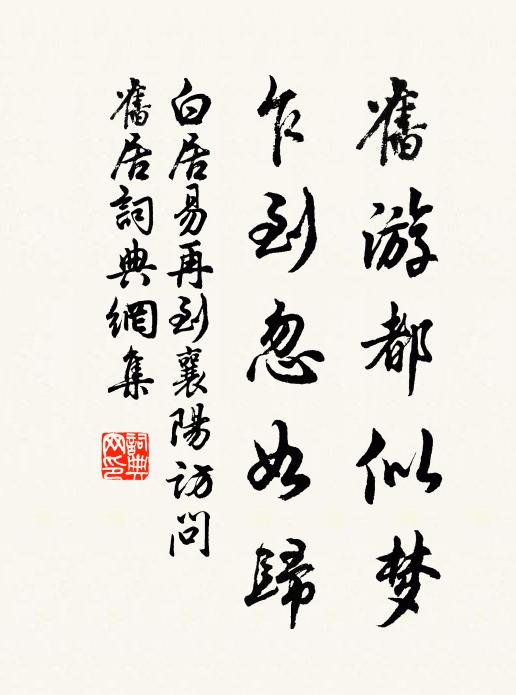 舊游都似梦
乍到忽如歸
白居易再到襄陽訪問
舊居詞典網集
詞典网印